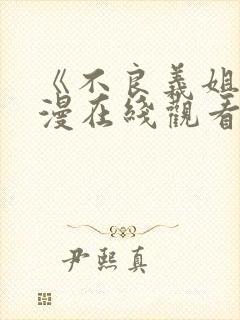 《不良義姐
漫在綫觀看
尹熙真